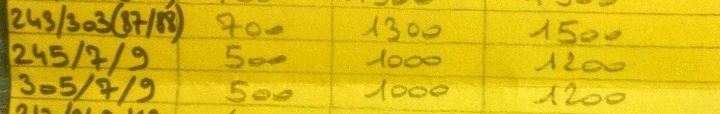 243/303(87/88) 700 1300 1500
245/7/9 500 1000 1200
305/7/9 500 1000 1200